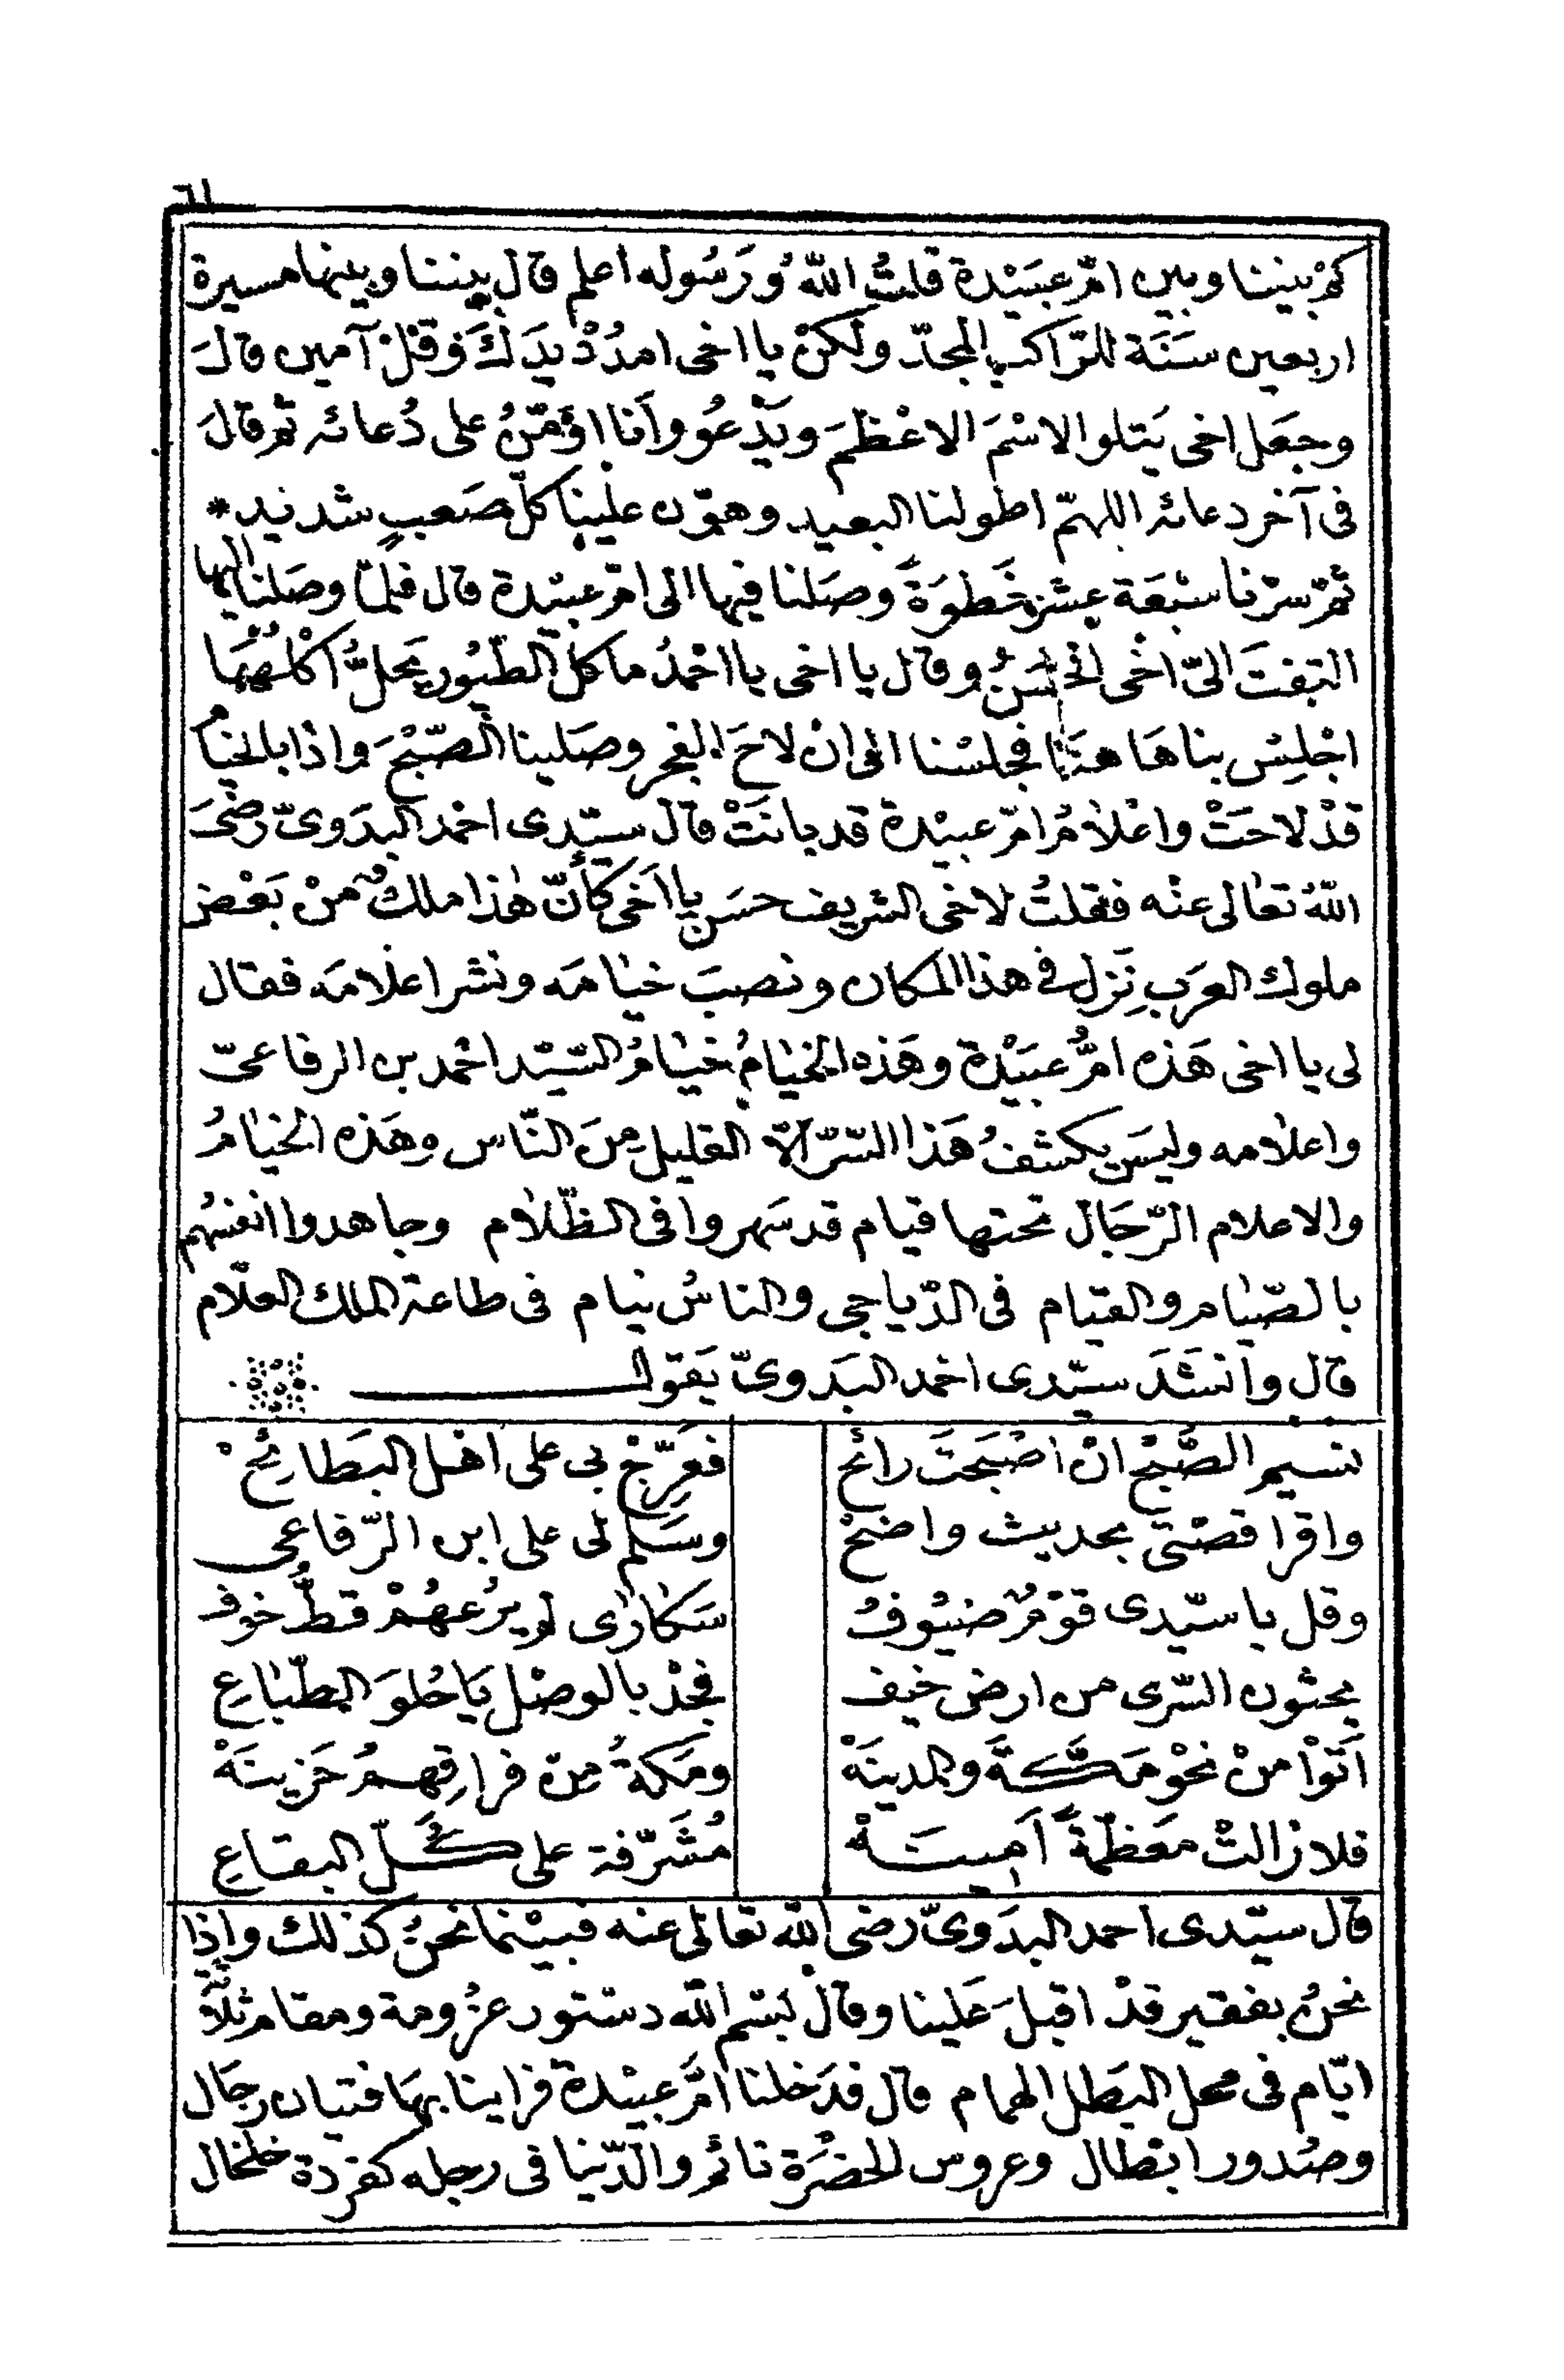 ٦١
كمْ بيننا وبين امّ عبَيْدة قلتُ اللّٰهُ وَرَسُوله اعلم قال بيننا وبينها مسيرة
اربعين سَنَة للرّاكب المجدّ ولكنْ يا اخى امدُدْ يدَكَ وَقلْ آمين قالَ
وجعَل اخى يَتلو الاسْمَ الاعْظمَ ويَدْعُو وأنا اؤمّنُ على دُعائه ثم قالَ
فى آخر دعائه اللهمّ اطو لنا البعيد وهوّن علينا كلّ صَعبٍ شديد *
ثمّ سرْنا سبْعَة عشر خَطوَةً وصَلنا فيها الى امّ عبيْدة قال فلمّا وصَلنا اليها
التفتَ الىّ اخْى الحسَنُ وقال يا اخى يا احْمدُ ما كلّ الطّيُور يَحلُّ اكْلُهَا
اجْلِسْ بنا هَاهنَا فجلسْنا الى انْ لاحَ الفجر وصَلينا الصّبْحَ واذا بالخيام
قدْ لاحَتْ واعْلاٰمُ امّ عبيْدة قد بانَتْ قال سيّدى احْمد البدَوىّ رضىَ
اللّٰهُ تعَالى عنْه فقلتُ لاخى الشريف حسَن يا اَخى كأنّ هٰذا ملكٌ منْ بَعْض
ملوك العرَب نَزل فى هذا المكان ونصبَ خيٰامَه ونشر اعلامَه فقال
لى يا اخى هَذه امُّ عبَيْدة وهَذه الخيٰامُ خيٰامُ السّيّد احْمد بن الرفاعىّ
واعلامه وليسَ يكشفُ هَذا السّرّ الّا القليل مِنَ النّاس وهَذه الخيٰامُ
والاعلام الرّجَال تحتها قيام قد سَهروا فى الظّلاٰم وجاهدوا انفسُهم
بالصّيٰام والقيام فى الدّياجى والناسُ نيام فى طاعة الملك العلّام
قال وانشَدَ سيّدى احمد البَدوىّ يَقول
نسيم الصُّبْح انْ اصْبَحتَ رائح فعَرِّجْ بى على اهْل البَطائِحْ
واقرا قصّتى بحديث واضحْ وسَلم لى على ابن الرّفاعى
وقل يا سيّدى قوْمٌ ضيُوفُ سَكارٰى لم يرُعهُمْ قطُّ خوف
يحثون السّرى من ارض خيف فجدْ بالوصْل يَا حُلوَ الطّبٰاعِ
اَتوْا منْ نحْو مَكَّةَ والمدينَهْ ومَكةُ مِنْ فراقِهمُ حَزينَهْ
فلا زالتْ معَظمّةً اَمِينَهْ مُشَرّفة على كُلّ البقاعِ
قال سيّدى احمد البدَوىّ رضى اللّٰه تعَالى عنه فبيْنما نحْنُ كذلك واِذا
نحْنُ بفقير قدْ اقبلَ عَلينا وقال بسْم اللّٰه دسْتور عزُومة ومقام ثلاثة
ايّام فى محل البَطل الهمام قال فدَخلنا امَّ عبيْدة فراينا بهَا فتيان رجَال
وصُدور ابْطال وعروس الحضْرَة نائم والدّنيا فى رجله كفرْدة خلخال